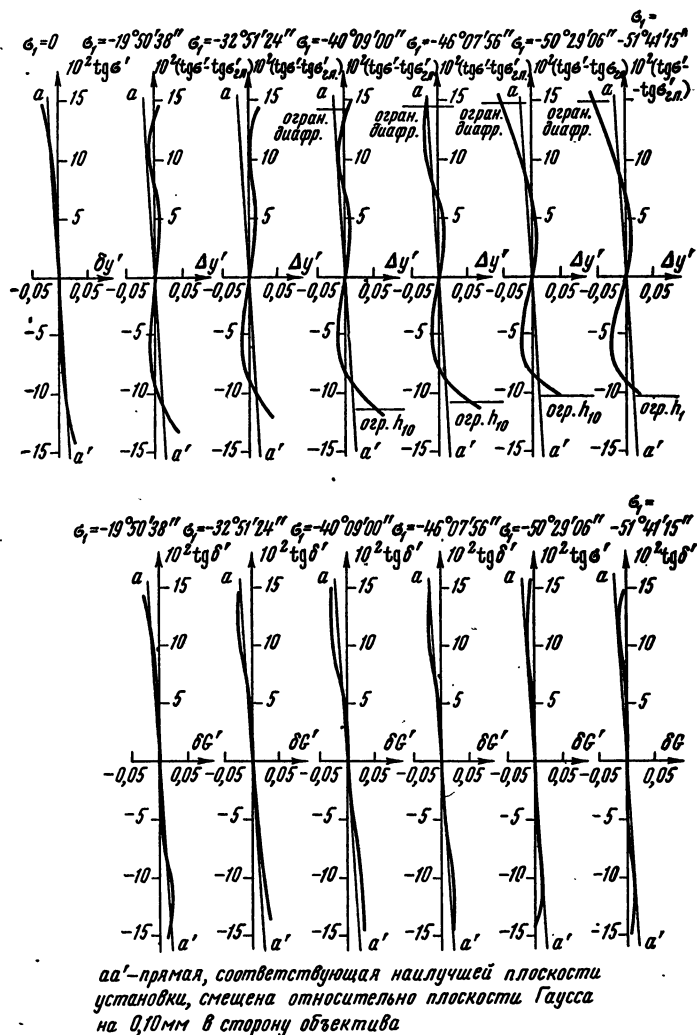 σ₁=
σ₁=0 σ₁=-19°50′38″ σ₁=-32°51′24″ σ₁=-40°09′00″ σ₁=-46°07′56″ σ₁=-50°29′06″ -51°41′15″
10²tgσ′ 10²(tgσ′-tgσ′гл.) 10²(tgσ′-tgσ′гл.) 10²(tgσ′-tgσ′гл.) 10²(tgσ′-tgσ′гл.) 10²(tgσ′-tgσ′гл.) 10²(tgσ′-
-tgσ′гл.)
a 15 a 15 a 15 a 15 a 15 a 15 a 15
огран. диафр. огран. диафр. огран. диафр. огран. диафр.
10 10 10 10 10 10 10
5 5 5 5 5 5 5
δy′ Δy′ Δy′ Δy′ Δy′ Δy′ Δy′
-0,05 0,05 -0,05 0,05 -0,05 0,05 -0,05 0,05 -0,05 0,05 -0,05 0,05 -0,05 0,05
-5 -5 -5 -5 -5 -5 -5
-10 -10 -10 -10 -10 -10 -10
огр. h₁₀ огр. h₁₀ огр. h₁₀ огр. h₁
-15 a′ -15 a′ -15 a′ -15 a′ -15 a′ -15 a′ -15 a′
σ₁=
σ₁=-19°50′38″ σ₁=-32°51′24″ σ₁=-40°09′00″ σ₁=-46°07′56″ σ₁=-50°29′06″ -51°41′15″
10²tgδ′ 10²tgδ′ 10²tgδ′ 10²tgδ′ 10²tgσ′ 10²tgδ′
a 15 a 15 a 15 a 15 a 15 a 15
10 10 10 10 10 10
5 5 5 5 5 5
δG′ δG′ δG′ δG′ δG′ δG
-0,05 0,05 -0,05 0,05 -0,05 0,05 -0,05 0,05 -0,05 0,05 -0,05 0,05
-5 -5 -5 -5 -5 -5
-10 -10 -10 -10 -10 -10
-15 a′ -15 a′ -15 a′ -15 a′ -15 a′ -15 a′
aa′-прямая, соответствующая наилучшей плоскости
установки, смещена относительно плоскости Гаусса
на 0,10мм в сторону объектива